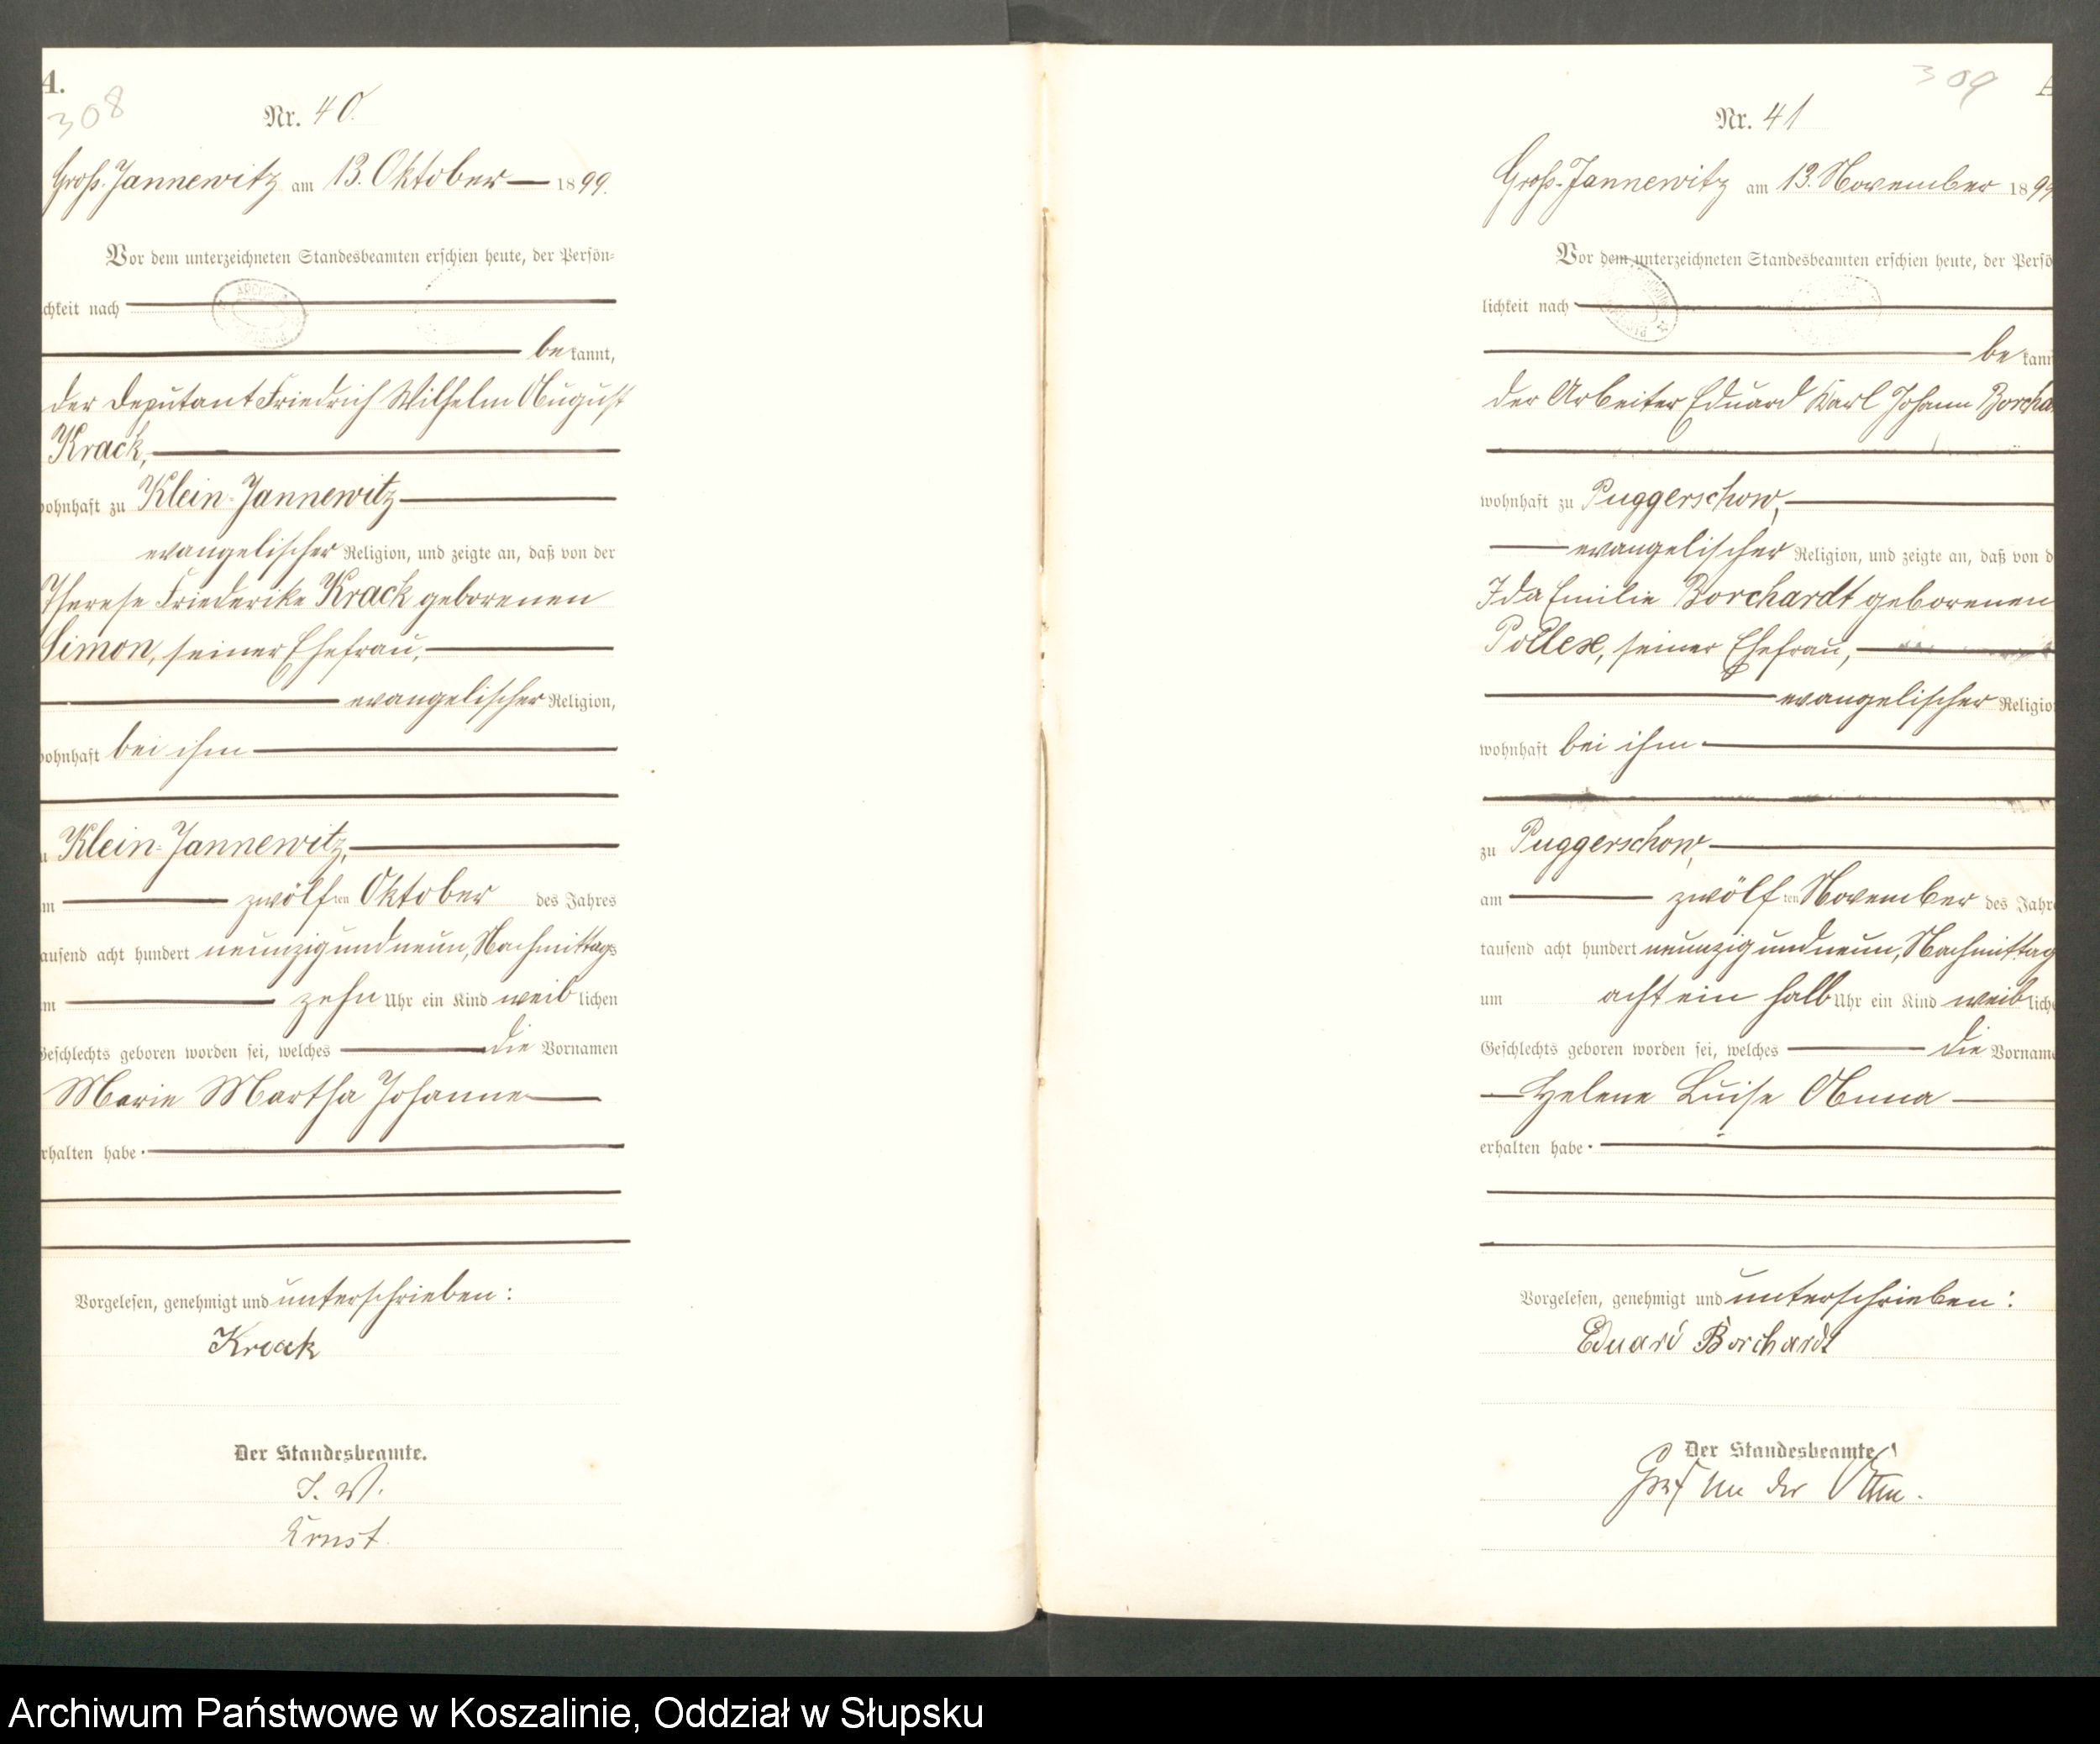 A.
308
Nr. 40.
Groß-Jannewitz am 13. Oktober 1899.
Vor dem unterzeichneten Standesbeamten erschien heute, der Persön-
chkeit nach
bekannt,
der Deputant Friedrich Wilhelm August
Krack,
wohnhaft zu Klein-Jannewitz
evangelischer Religion, und zeigte an, daß von der
Therese Friederike Krack geborenen
Simon, seiner Ehefrau,
evangelischer Religion,
wohnhaft bei ihm
u Klein-Jannewitz,
m zwölften Oktober des Jahres
ausend acht hundert neunzig und neun, Nachmittags
m zehn Uhr ein Kind weiblichen
Geschlechts geboren worden sei, welches die Vornamen
Marie Martha Johanne
rhalten habe.
Vorgelesen, genehmigt und unterschrieben:
Krack
Der Standesbeamte.
I. V.
Ernst
309
Nr. 41
Groß-Jannewitz am 13. November 1899
Vor dem unterzeichneten Standesbeamten erschien heute, der Persö
lichkeit nach
bekann
der Arbeiter Eduard Karl Johann Borcha
wohnhaft zu Puggerschow,
evangelischer Religion, und zeigte an, daß von d
Ida Emilie Borchardt geborenen
Pollex, seiner Ehefrau,
evangelischer Religio
wohnhaft bei ihm
zu Puggerschow,
am zwölften November des Jahre
tausend acht hundert neunzig und neun, Nachmittag
um acht ein halb Uhr ein Kind weibliche
Geschlechts geboren worden sei, welches die Vorname
Helene Luise Anna
erhalten habe.
Vorgelesen, genehmigt und unterschrieben:
Eduard Borchardt
Der Standesbeamte
Graf von der
Archiwum Państwowe w Koszalinie, Oddział w Słupsku